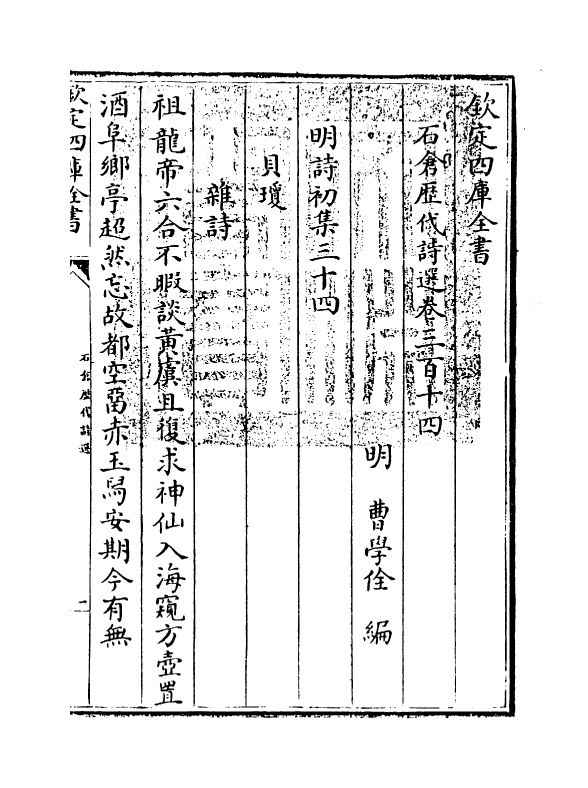 欽定四庫全書
石倉歴代詩選卷三百十四
明 曹學佺 編
明詩初集三十四
貝瓊
雜詩
祖龍帝六合不暇談黄虞且復求神仙入海窺方壺置
酒阜鄉亭超然忘故都空留赤玉舄安期今有無
欽定四庫全書
石倉歴代詩選
二